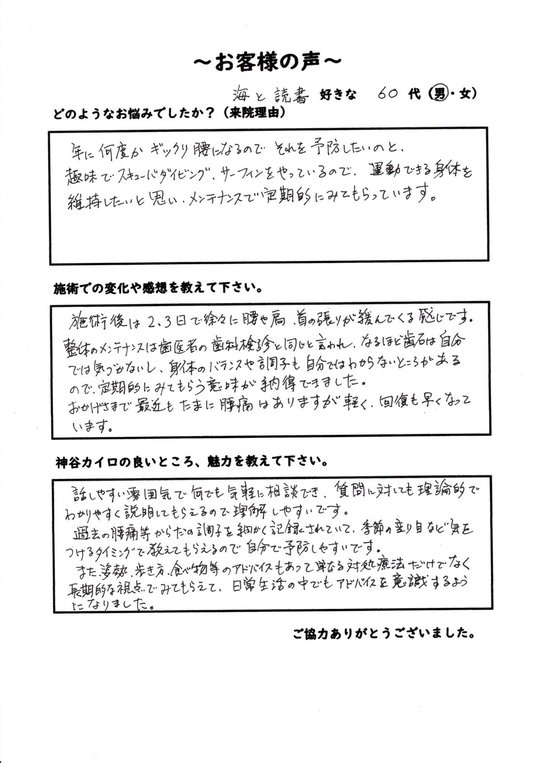 ～お客様の声～
海と読書 好きな 60 代（男・女）
どのようなお悩みでしたか？（来院理由）
年に何度かギックリ腰になるので それを予防したいのと、
趣味でスキューバダイビング、サーフィンをやっているので、運動できる身体を
維持したいと思い、メンテナンスで定期的にみてもらっています。
施術での変化や感想を教えて下さい。
施術後は2、3日で徐々に腰や肩、首の張りが緩んでくる感じです。
整体のメンテナンスは歯医者の歯科検診と同じと言われ、なるほど歯石は自分
では気づかないし、身体のバランスや調子も自分ではわからないところがある
ので、定期的にみてもらう意味が納得できました。
おかげさまで最近もたまに腰痛はありますが軽く、回復も早くなって
います。
神谷カイロの良いところ、魅力を教えて下さい。
話しやすい雰囲気で何でも気軽に相談でき、質問に対しても理論的で
わかりやすく説明してもらえるので理解しやすいです。
過去の腰痛等からだの調子を細かく記録されていて、季節の変り目など気を
つけるタイミングで教えてもらえるので自分で予防しやすいです。
また姿勢、歩き方、食べ物等のアドバイスもあって単なる対処療法だけでなく
長期的な視点でみてもらえて、日常生活の中でもアドバイスを意識するよう
になりました。
ご協力ありがとうございました。